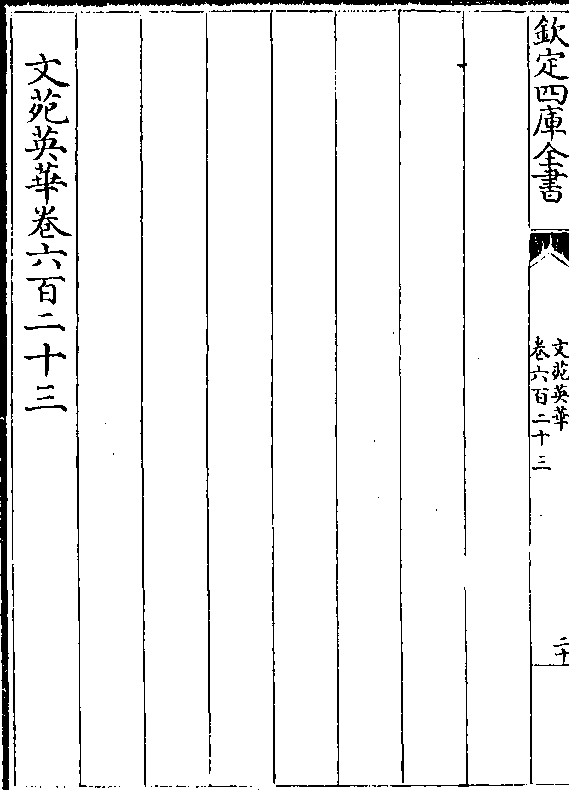 欽定四庫全書
文苑英華
卷六百二十三
二十
文苑英華卷六百二十三